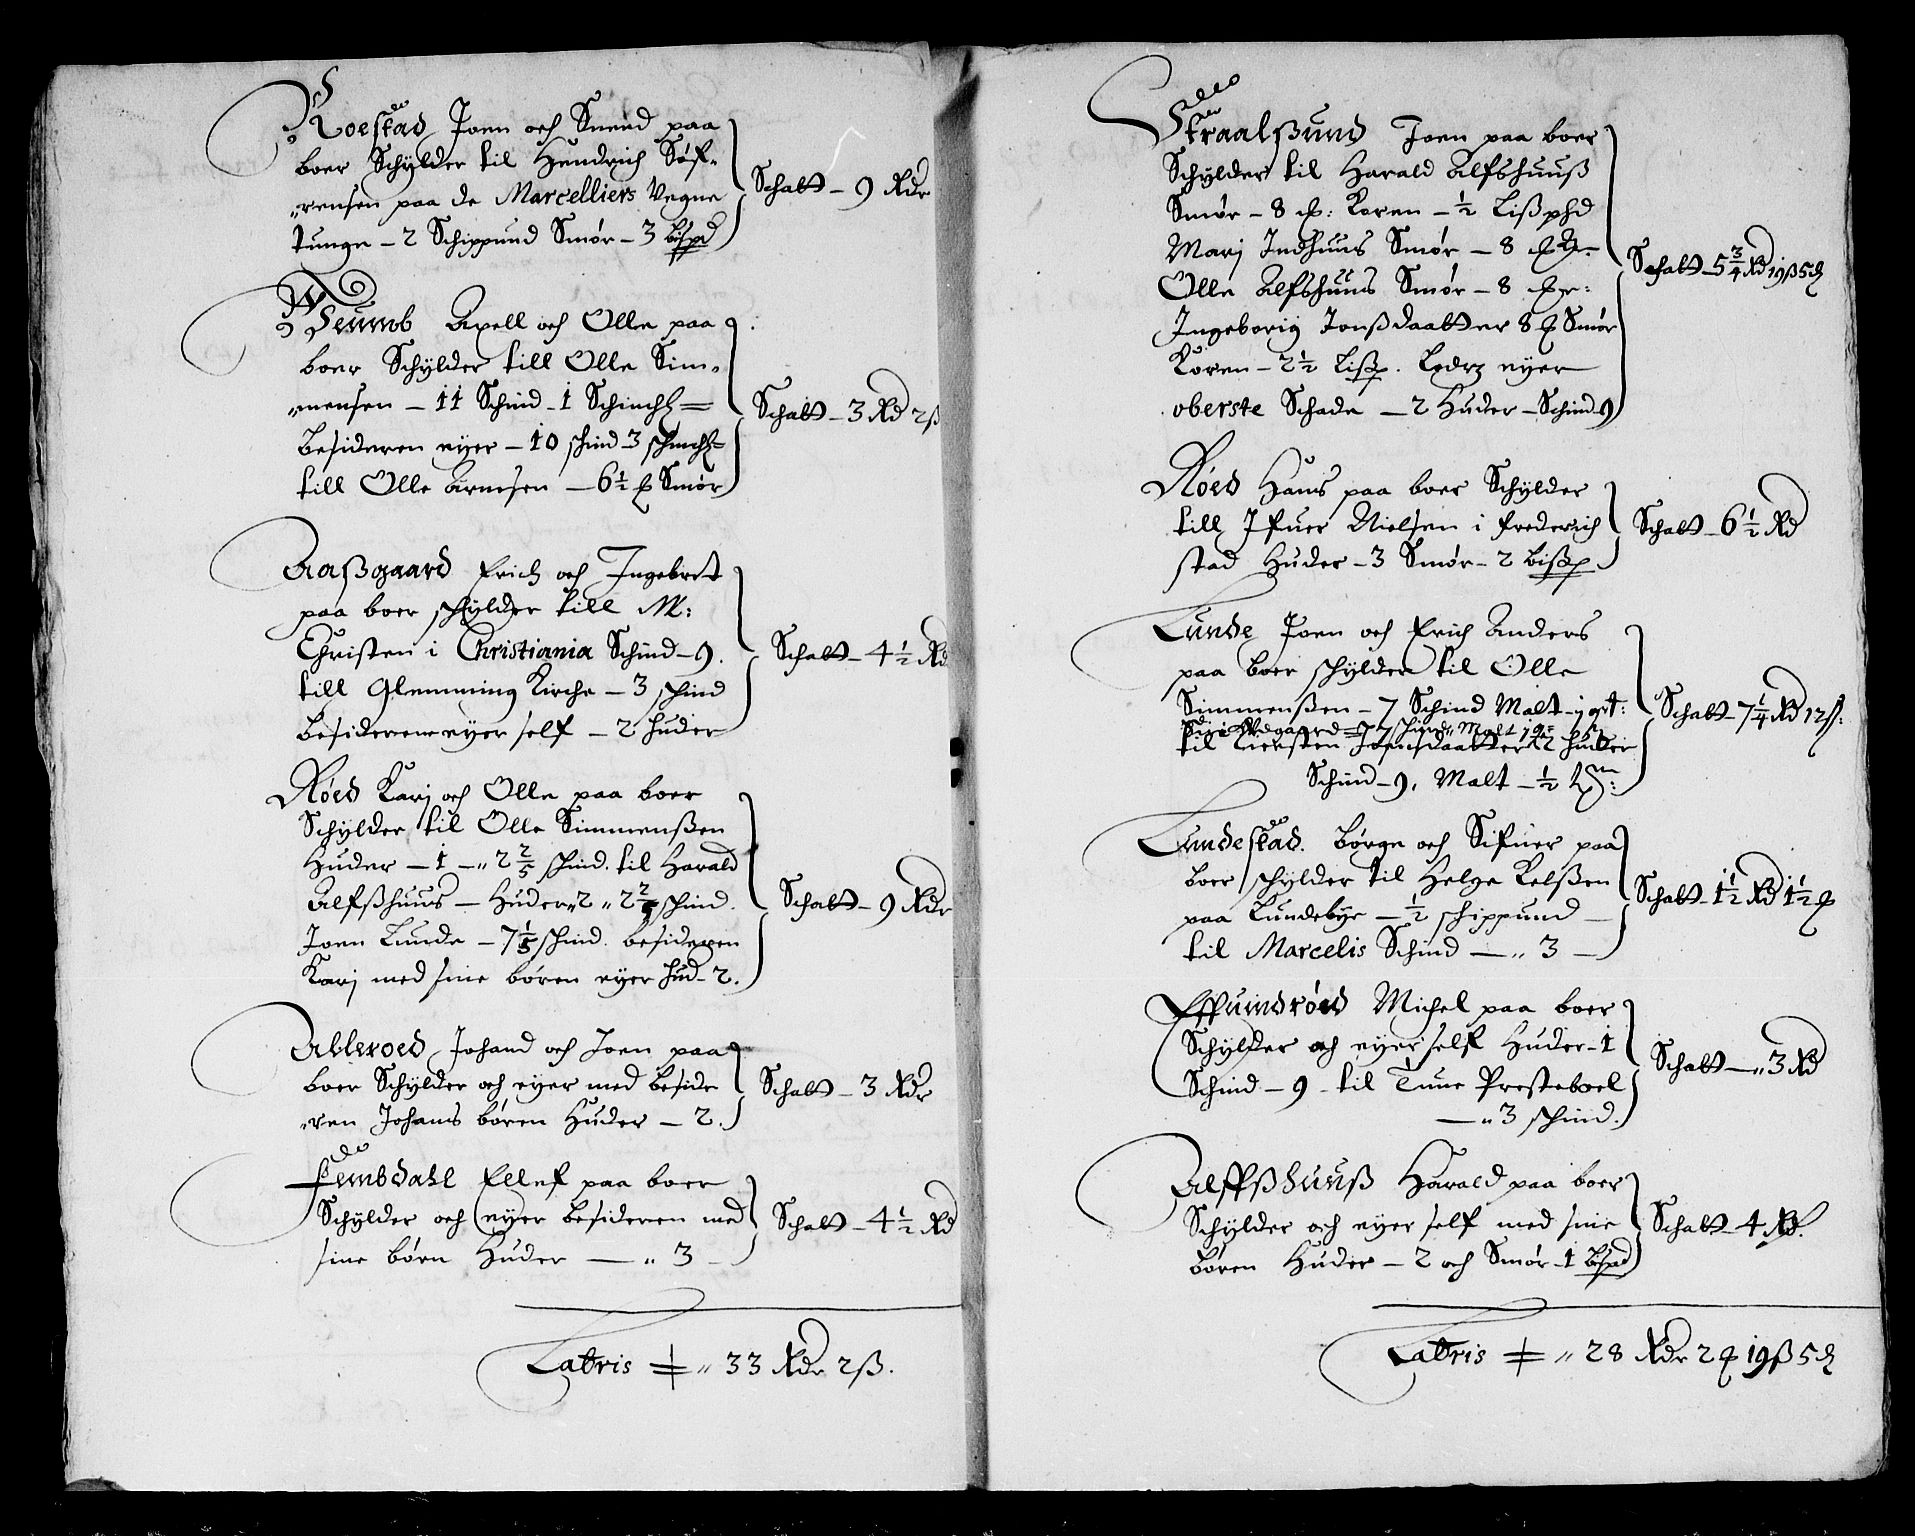 Roestad Joen och Suend paa
boer Schÿlder til Hendrich Søf„
„rensen paa de Marcelliers Vegne
tunge – 2 Schippund Smør – 3 Lispd
Schatt – 9 Rdr
Axell och Olle paa
boer Schÿlder till Olle Sim„
„mensen – 11 Schind – 1
Besideren eyer – 10 schind 3
till Olle Arnesen – 6½ Smør
Schatt – 3 Rd 2ß
Aaßgaard Erich och Ingebret
paa boer schÿlder till M:
Christen i Christiania Schind – 9.
till Glemming Kirche – 3 schind
besiderene eyer self – 2 huder
Schatt – 4½ Rd
Røed Karj och Olle paa boer
Schÿlder til Olle Simmenßen
Huder – 1 – „ 2 2/5 schind. til Harald
Alfßhuus – Huder „ 2 „ 2 2/5 schind.
Joen Lunde – 7 1/5 schind. besideren
Karj med sine børen eyer hud – 2.
Schatt – 9 Rdr
Ableroed Johand och Joen paa
boer Schÿlder och eyer med beside
„ren Johans børen Huder – 2.
Schatt – 3 Rdr
Fembdahl Ellef paa boer
Schÿlder och eyer besideren med
sine børn Huder — „ 3 –
Schatt – 4½ Rd
Latris „ 33 Rdr 2ß.
Straalßund Joen paa boer
Schÿlder til Harald Alfshuuß
Smør – 8 Koren – ½ Lißphd
Marj Indhuus Smør – 8
Olle Alfshuus Smør – 8
Ingeborig Jonßdaatter 8 Smør
Koren – 2½ Lißp. eyer
oberste Schade — 2 Huder – Schind 9
Schatt – 5¾ Rd 19ß 5
Røed Hans paa boer Schÿlder
till Ifuer Nielsen i Frederich
stad Huder – 3 Smør – 2 Lißp
Schatt – 6½ Rd
Lunde Joen och Erich Anders
paa boer schÿlder til Olle
Simmenßen – 7 Schind Malt – j qrt:
7 schind Malt j
til Kiersten Joensdaatter 2 huder
Schind – 9, Malt – ½
Schatt – 7¼ Rd 12ß:
Lundestad. Børge och Sifuer paa
boer schÿlder til Helge Kelßen
paa Lundebÿe – ½ schippund —
til Marcelis Schind — „ 3 –
Schatt – 1½ Rd 1½
Effuindrøed Michel paa boer
Schÿlder och eyer self Huder – 1
Schind – 9 – til Tune Presteboel
— „ 3 schind.
Schatt – „ 3 Rd
Alffßhuuß Harald paa boer
Schÿlder och eyer self med sine
børen Huder – 2 och Smør – 1 Lispd
Schatt – 4 Rd.
Latris „ 28 Rdr 2 19ß 5